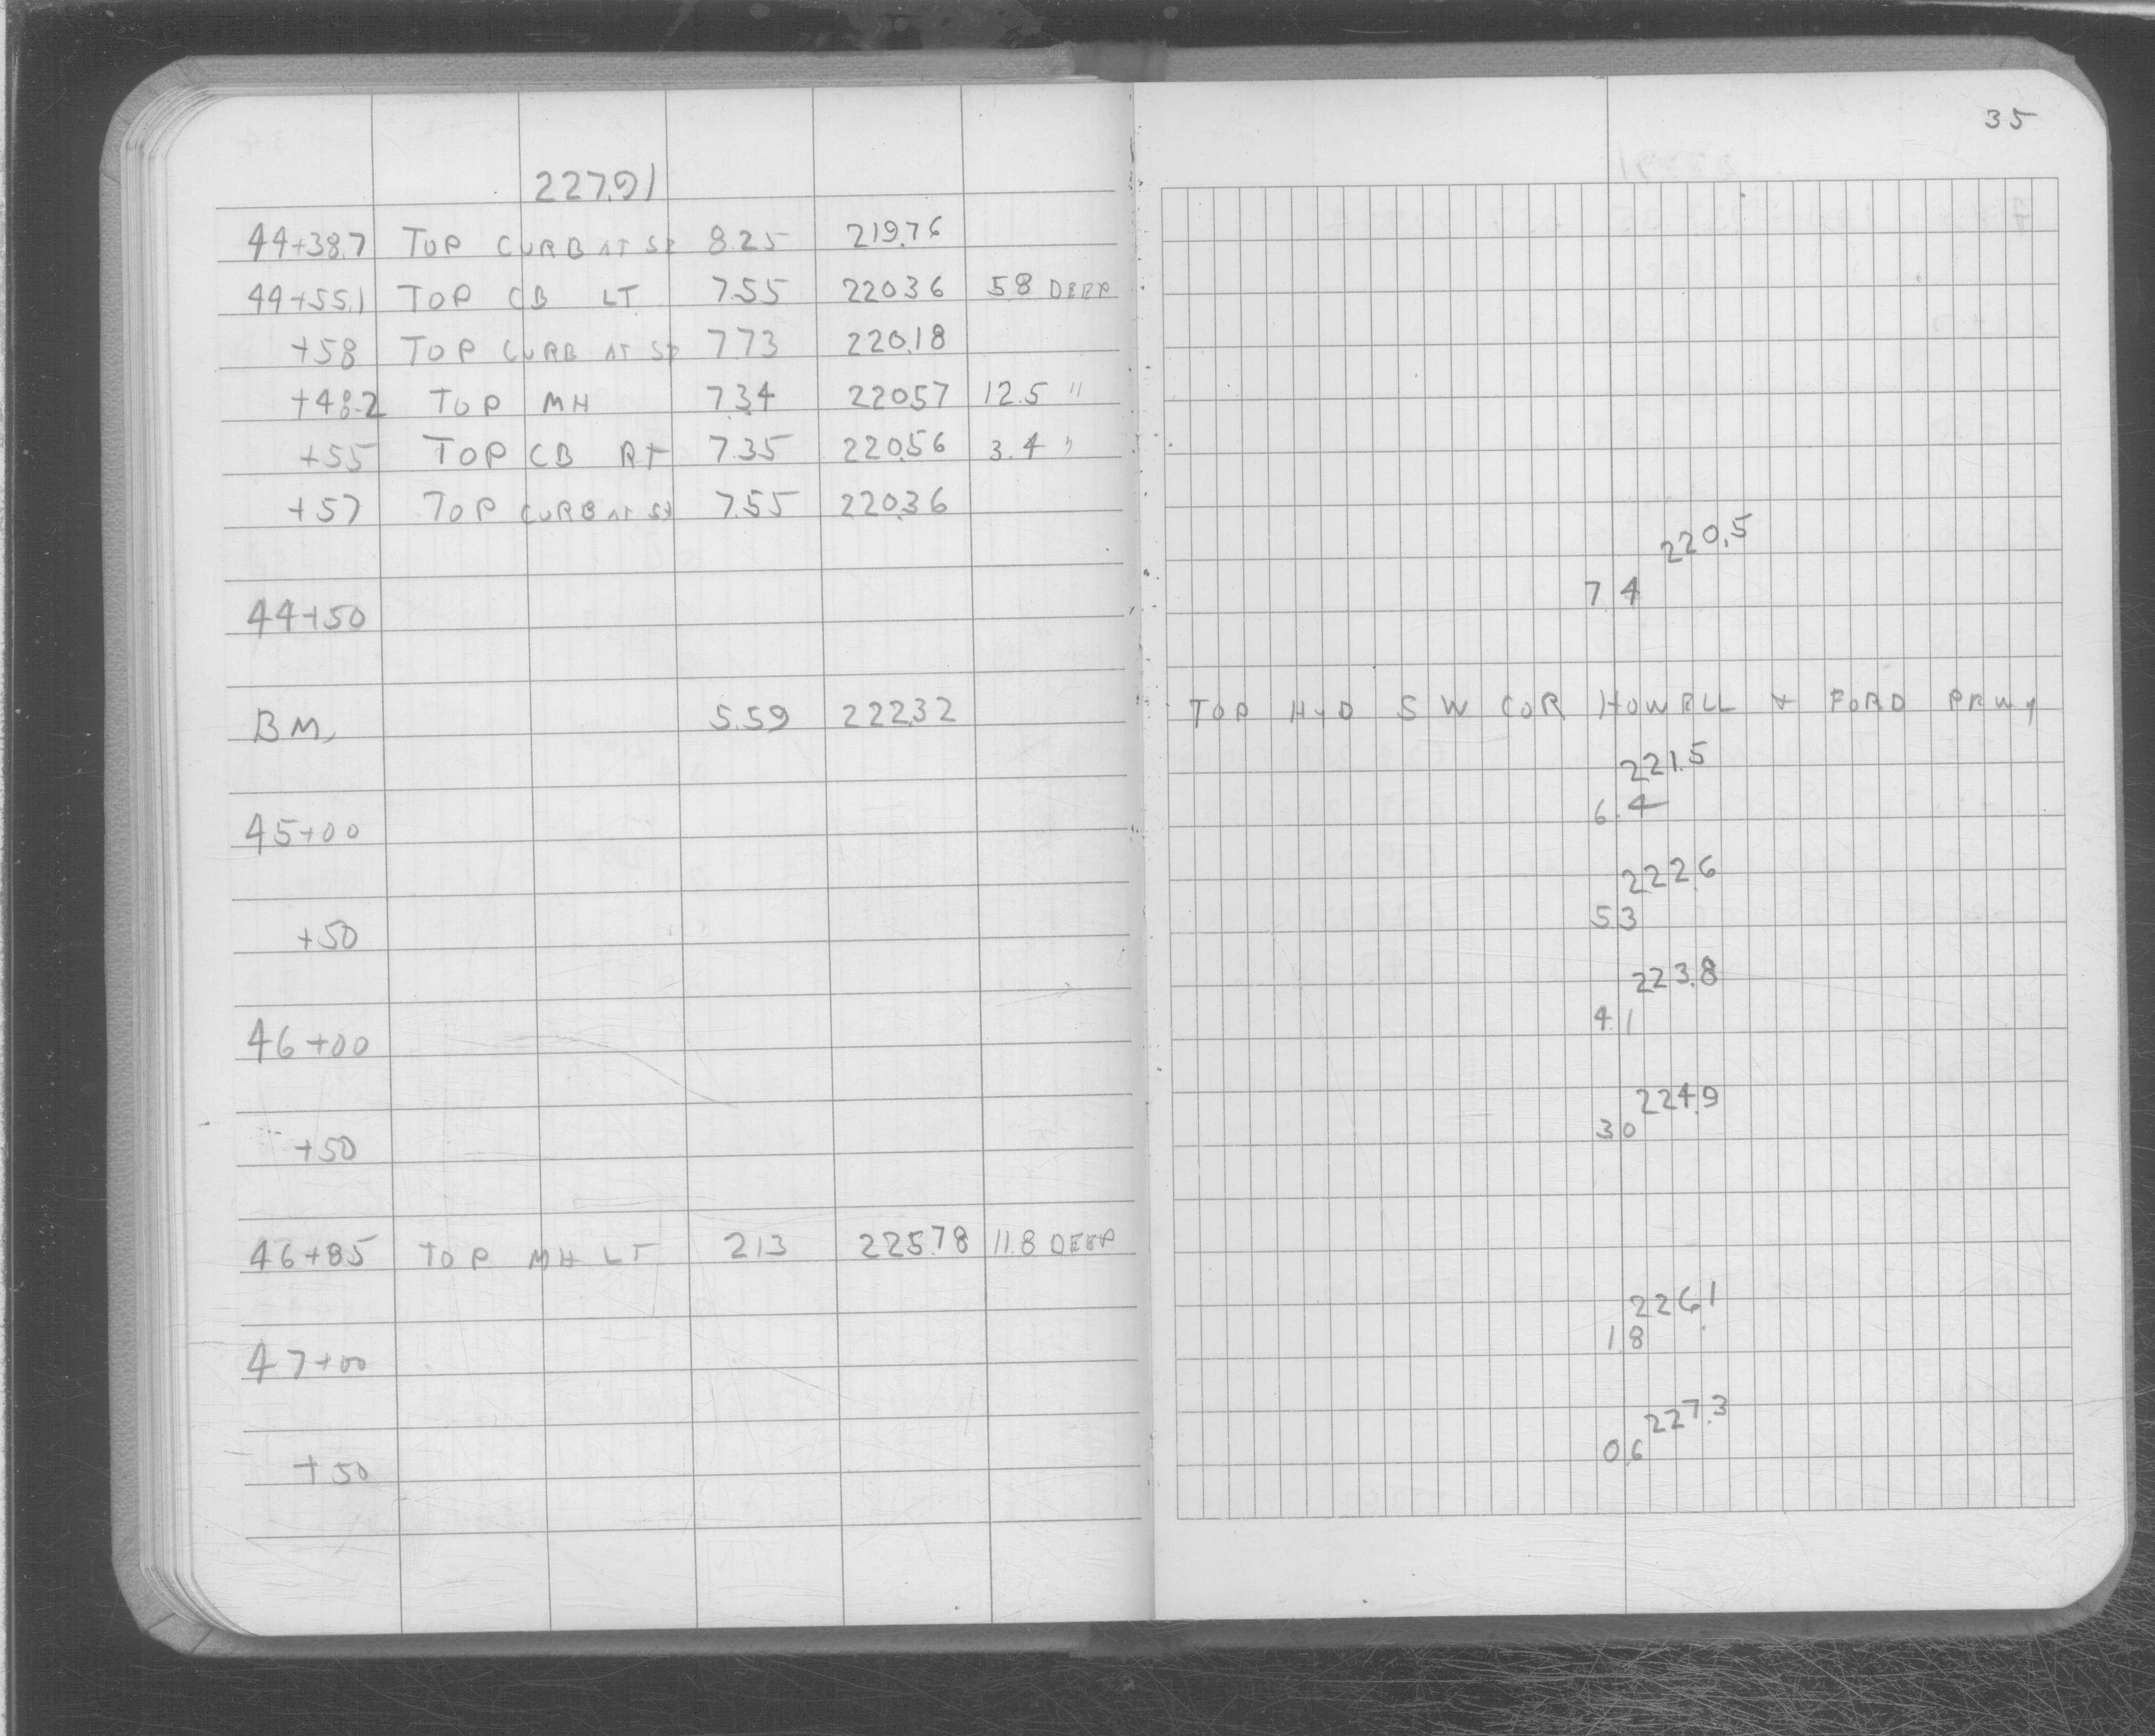 35
227.91
44+38.7 TOP CURB AT ST 8.25 219.76
44+55.1 TOP CB LT 7.55 220.36 5.8 DEEP
+58 TOP CURB AT ST 7.73 220.18
+48.2 TOP MH 7.34 220.57 12.5 "
+55 TOP CB RT 7.35 220.56 3.4 "
+57 TOP CURB AT ST 7.55 220.36
220.5
44+50 7.4
BM, 5.59 222.32 TOP HYD S W COR HOWELL & FORD PKWY
221.5
45+00 6.4
222.6
+50 5.3
223.8
46+00 4.1
224.9
+50 3.0
46+85 TOP MH LT 2.13 225.78 11.8 DEEP
226.1
47+00 1.8
227.3
+50 0.6